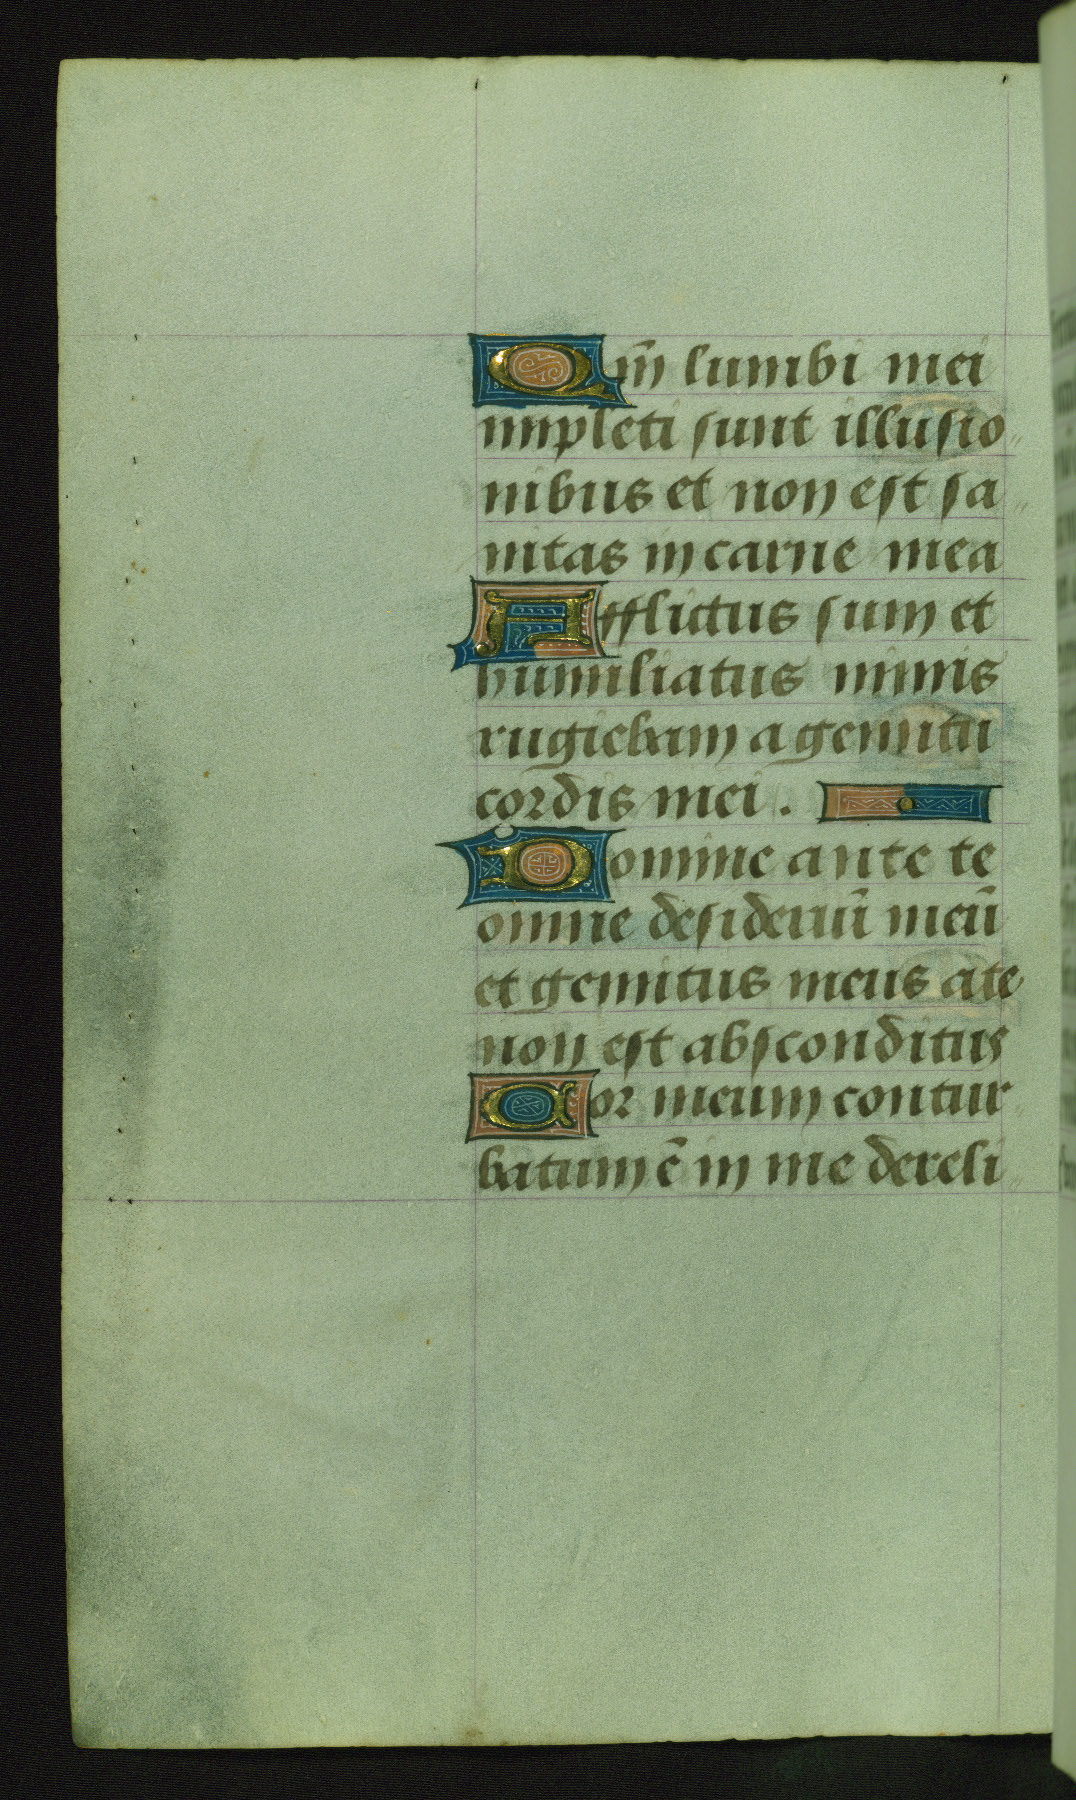 Qm̄ lumbi mei
impleti sunt illusio
nibus et non est sa
nitas in carne mea
Afflictus sum et
humiliatus nimis
rugiebam a gemitu
cordis mei .
Domine ante te
omne desideriū meū
et gemitus meus a te
non est absconditus
Cor meum contur
batum ē in me dereli